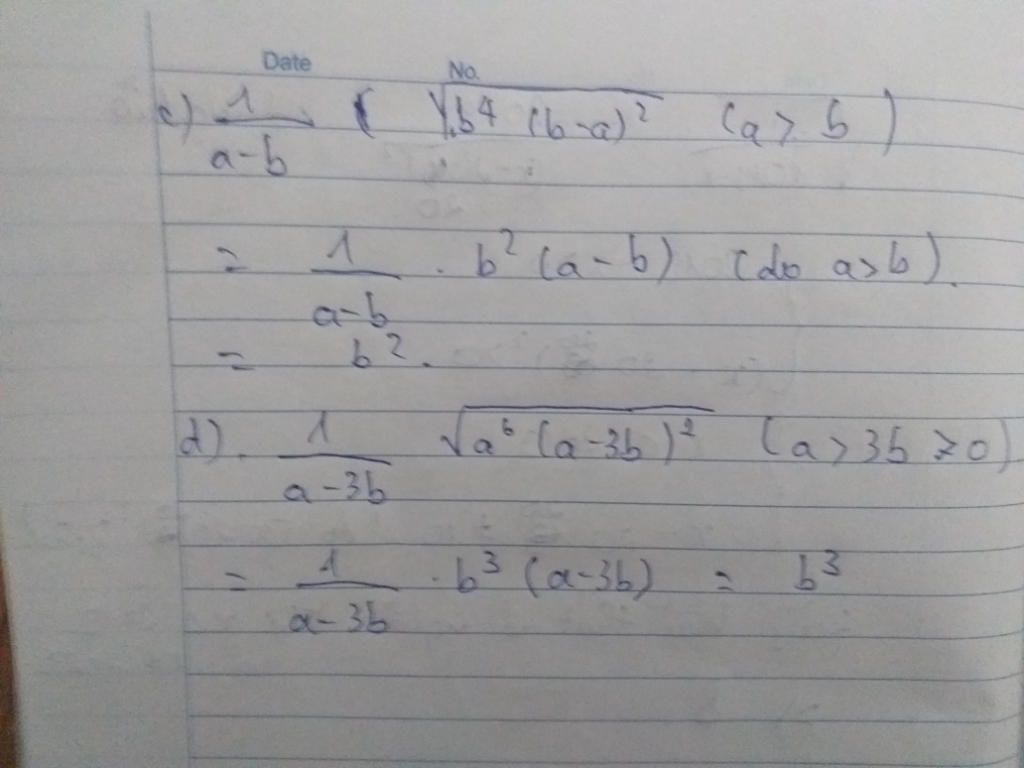 Date No.
c) 1/(a-b) ( √(b⁴ (b-a)²) (a > b)
= 1/(a-b) . b² (a-b) (do a>b).
= b².
d). 1/(a-3b) √(a⁶ (a-3b)²) (a > 3b ≥ 0)
= 1/(a-3b) . b³ (a-3b) = b³